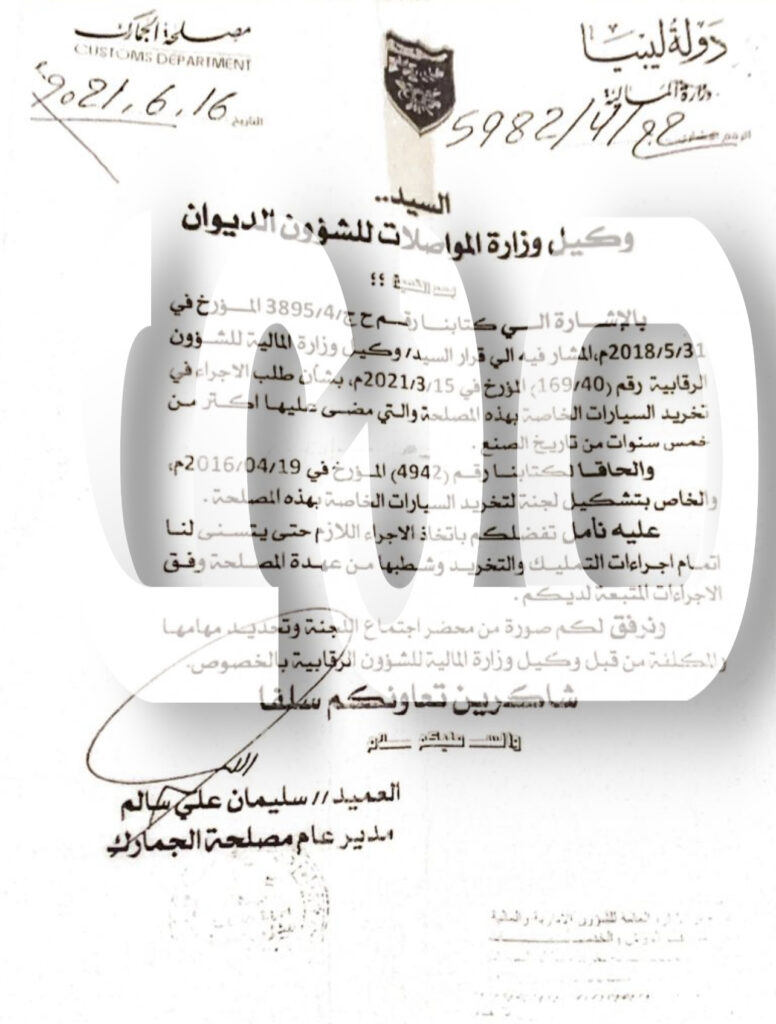 دولة ليبيا
وزارة المالية
مصلحة الجمارك
CUSTOMS DEPARTMENT
التاريخ 2021.6.16
5982/4/
السيد..
وكيل وزارة المواصلات للشؤون الديوان
بعد التحية ؛؛
بالإشارة الي كتابنا رقم ح ج/3895/4 المؤرخ في
2018/5/31م،المشار فيه الي قرار السيد/ وكيل وزارة المالية للشؤون
الرقابية رقم (169/40) المؤرخ في 2021/3/15م، بشأن طلب الاجراء في
تخريد السيارات الخاصة بهذه المصلحة والتي مضى عليها اكثر من
خمس سنوات من تاريخ الصنع .
والحاقا لكتابنا رقم (4942) المؤرخ في 2016/04/19م،
والخاص بتشكيل لجنة لتخريد السيارات الخاصة بهذه المصلحة .
عليه نأمل تفضلكم باتخاذ الاجراء اللازم حتى يتسنى لنا
اتمام اجراءات التمليك والتخريد وشطبها من عهدة المصلحة وفق
الاجراءات المتبعة لديكم .
ونرفق لكم صورة من محضر اجتماع اللجنة وتحديد مهامها
والمكلفة من قبل وكيل وزارة المالية للشؤون الرقابية بالخصوص.
شاكرين تعاونكم سلفا
والســ عليكم ــلام
العميد // سليمان علي سالم
مدير عام مصلحة الجمارك